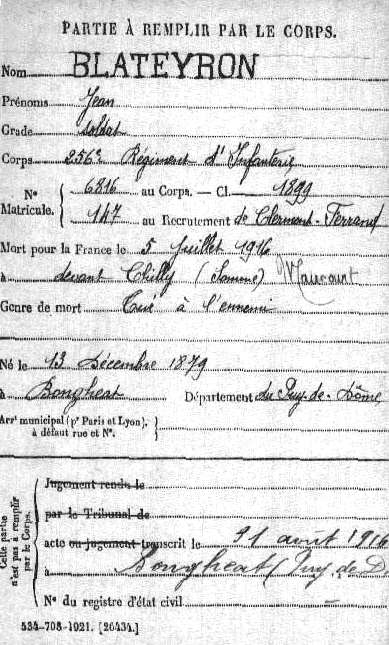 PARTIE À REMPLIR PAR LE CORPS.
Nom BLATEYRON
Prénoms Jean
Grade soldat
Corps 256e Régiment d'Infanterie
N° Matricule. 6816 au Corps. — Cl. 1899
147 au Recrutement de Clermont-Ferrand
Mort pour la France le 5 Juillet 1916
à devant Chilly (Somme) Maucourt
Genre de mort Tué à l'ennemi
Né le 13 Décembre 1879
à Bongheat Département du Puy-de-Dôme
Arrt municipal (pr Paris et Lyon), à défaut rue et N°.
Cette partie n'est pas à remplir par le Corps.
Jugement rendu le
par le Tribunal de
acte ou jugement transcrit le 31 août 1916
à Bongheat (Puy-de-D
N° du registre d'état civil
534-708-1921. [26434.]